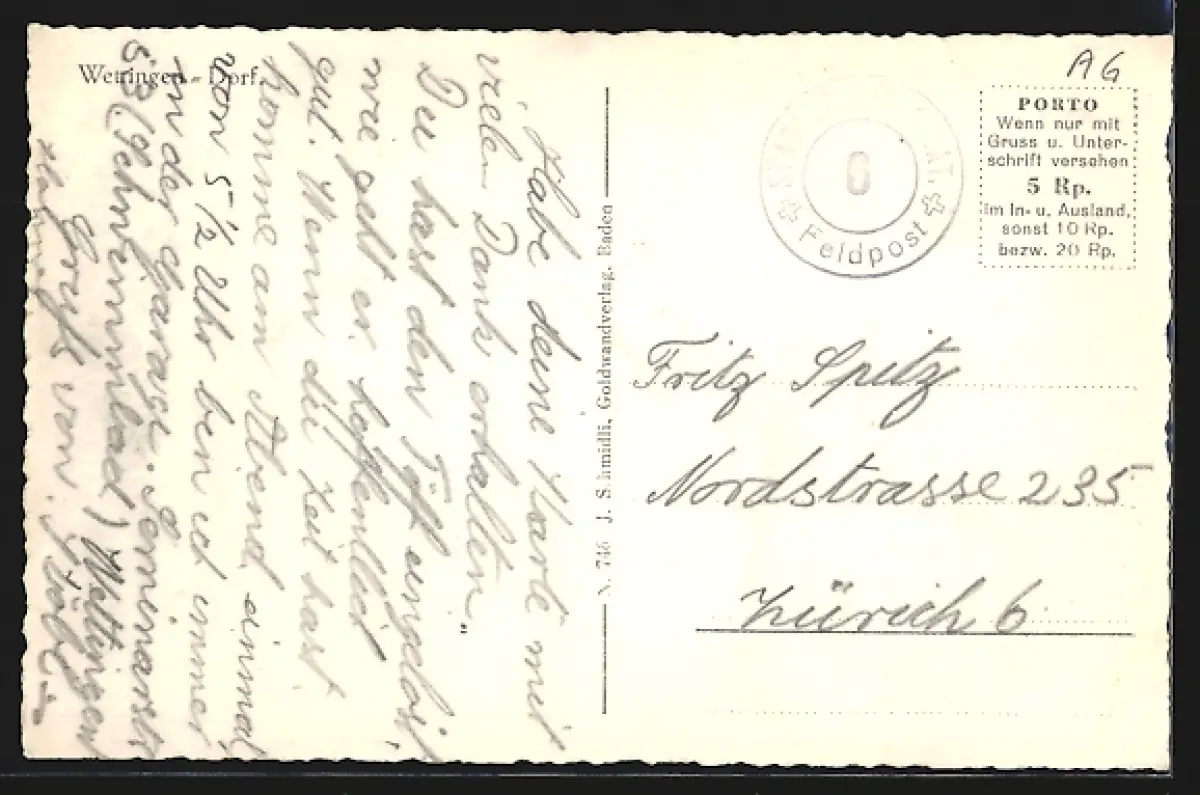 Wettingen - Dorf.
Habe deine Karte mit
vielen Dank erhalten.
Du hast den Töff
wie geht er hoffentlich
gut. Wenn du Zeit hast
komme am Abend einmal,
von 5 1/2 Uhr bin ich immer
in der Garage. Seminarstr
53 (Schwimmbad) Wettingen
Gruss von
N. 746 J. Schmidli, Goldwandverlag, Baden
AG
PORTO
Wenn nur mit
Gruss u. Unter-
schrift versehen
5 Rp.
im In- u. Ausland,
sonst 10 Rp.
bezw. 20 Rp.
6
Feldpost
Fritz Spitz
Nordstrasse 235
Zürich 6